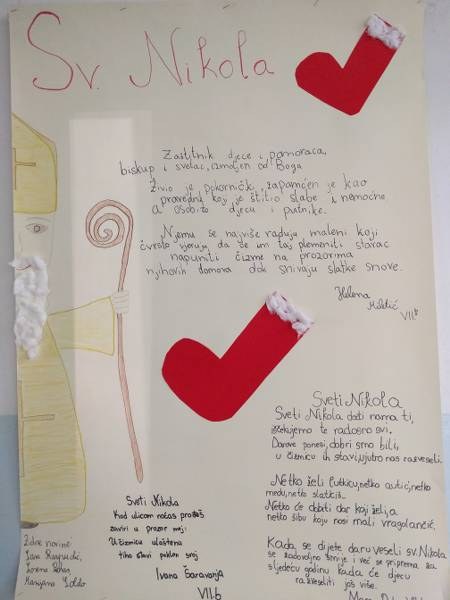 Sv. Nikola
Zaštitnik djece i pomoraca,
biskup i svetac, izmoljen od Boga.
Živio je pokornički, zapamćen je kao
pravednik koji je štitio slabe i nemoćne,
a osobito djecu i putnike.
Njemu se najviše raduju maleni koji
čvrsto vjeruju, da će im taj plemeniti starac
napuniti čizme na prozorima
njihovih domova dok snivaju slatke snove.
Helena
VII.b
Sveti Nikola
Kad ulicom noćas prođeš
zaviri u prozor moj.
U čizmicu uloštenu
tiho stavi poklon svoj
Ivana Šaravanja
VII.b
Sveti Nikola
Sveti Nikola dođi nama ti,
iščekujemo te radosno svi.
Darove ponesi, dobri smo bili,
u čizmicu ih stavi, ujutro nas razveseli.
Netko želi lutkicu, netko autić, netko
medu, netko slatkiš.
Netko će dobiti dar koji želi, a
netko šibu koju nosi mali vragolančić.
Kada se dijete daru veseli sv. Nikola
se zadovoljno smije i već se priprema za
sljedeću godinu kada će djecu
razveseliti još više.
Zidne novine:
Lorena
Marijana